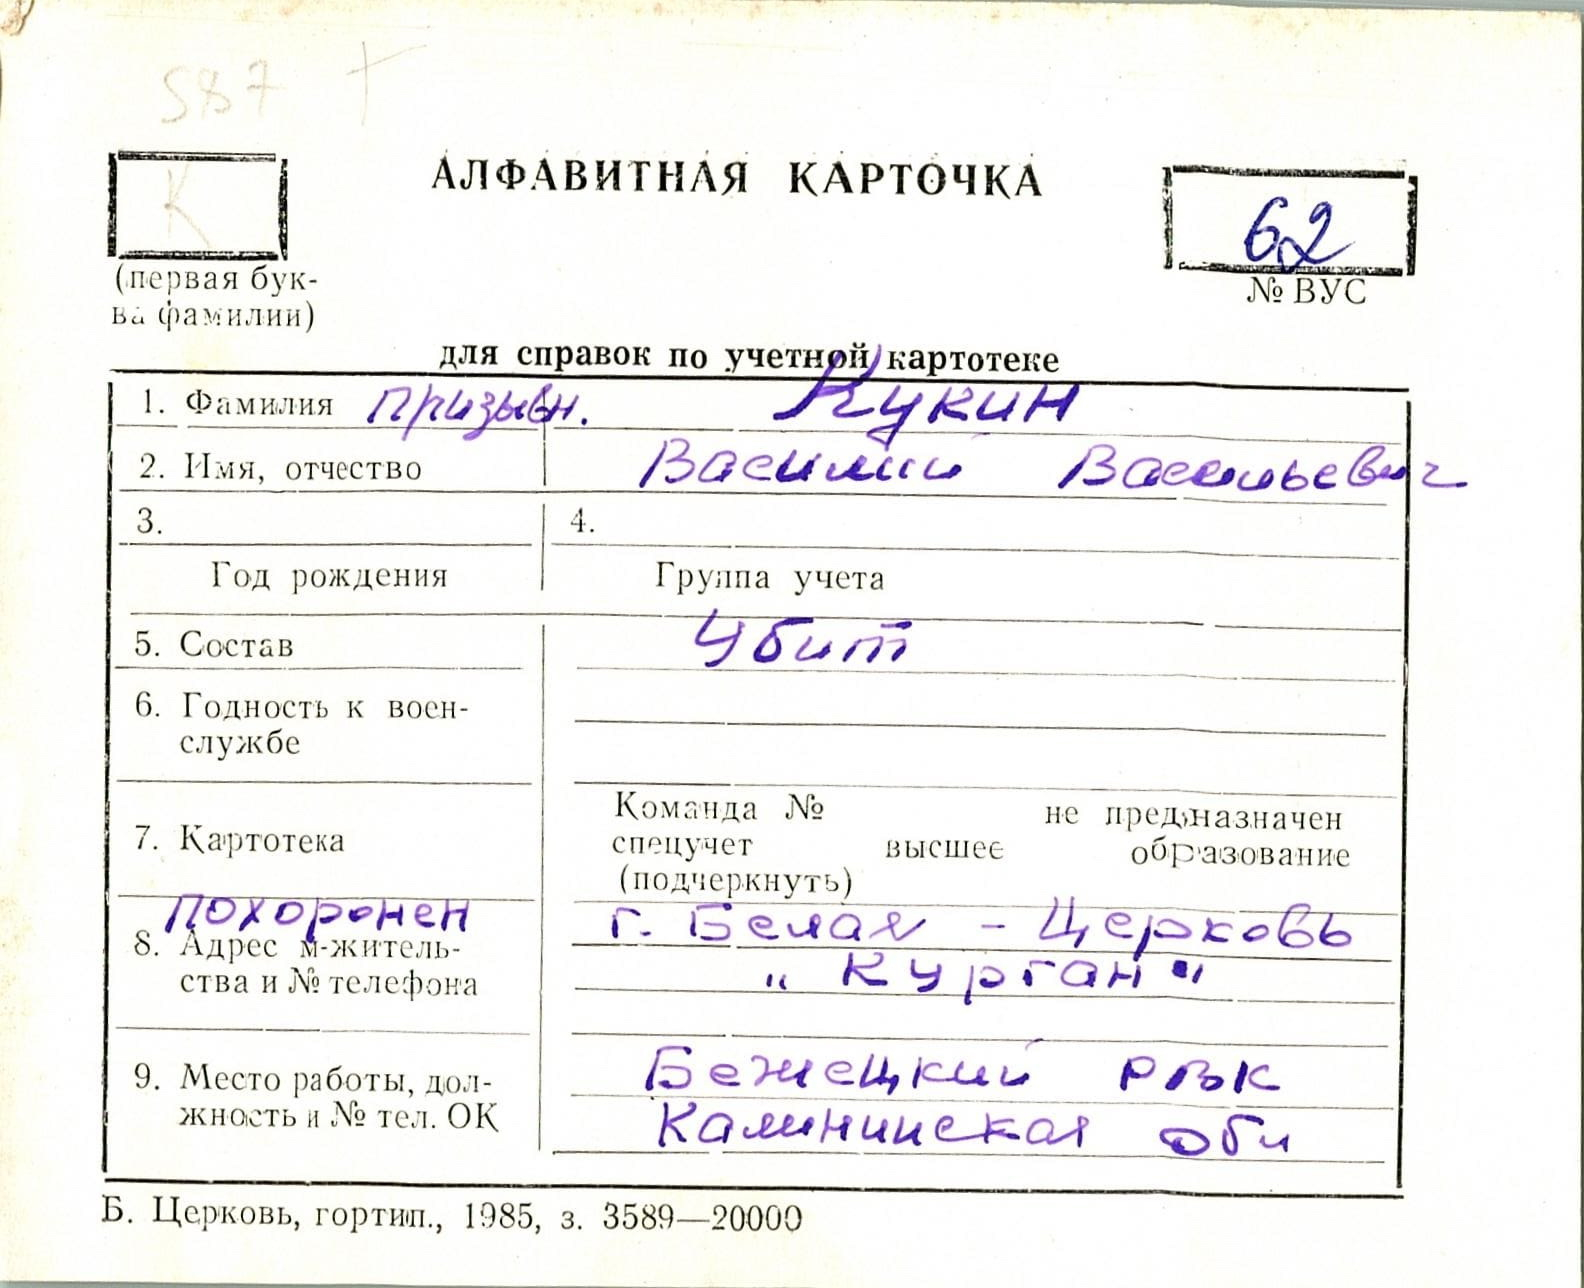 587 †
К
АЛФАВИТНАЯ КАРТОЧКА
62
(первая бук-
ва фамилии)
№ ВУС
для справок по учетной картотеке
1. Фамилия призывн. Кукин
2. Имя, отчество Василий Васильевич
3. 4.
Год рождения Группа учета
5. Состав Убит
6. Годность к воен-
службе
7. Картотека
Команда № не предназначен
спецучет высшее образование
(подчеркнуть)
похоронен г. Белая - Церковь
8. Адрес м-житель-
ства и № телефона
"Курган"
9. Место работы, дол-
жность и № тел. ОК
Бежецкий РВК
Калининская обл
Б. Церковь, гортип., 1985, з. 3589—20000